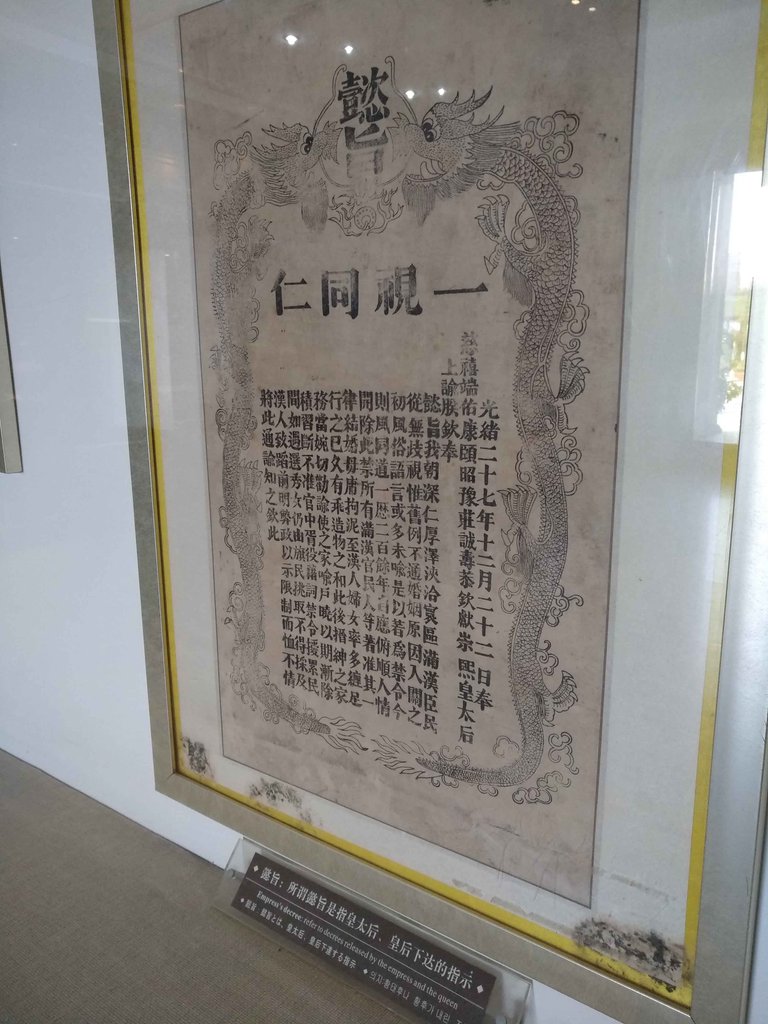 懿旨
一視同仁
光緒二十七年十二月二十二日奉
慈禧端佑康頤昭豫莊誠壽恭欽獻崇熙皇太后
上諭朕欽奉
懿旨我朝深仁厚澤浹洽寰區滿漢臣民
從無歧視惟舊例不通婚姻原因入關之
初風俗語言或多未喻是以著爲禁令今
則風同道一歷二百餘年自應俯順人情
開除此禁所有滿漢官民人等著准其一
律結婚毋庸拘泥至漢人婦女率多纏足
行之已久有乖造物之和此後搢紳之家
務當婉切勸諭使之家喻戶曉以期漸除
積習斷不准官中胥役藉詞禁令擾累民
間如遇選秀女仍由旗民挑取不得採及
漢人致蹈前明弊政以示限制而恤下情
將此通諭知之欽此
◆ 懿旨：所谓懿旨是指皇太后、皇后下达的指示 ◆
Empress's decree: refer to decrees released by the empress and the queen
◆ 懿旨：懿旨とは、皇太后、皇后下達する指示 ◆ 의지:황태후나 황후가 내린